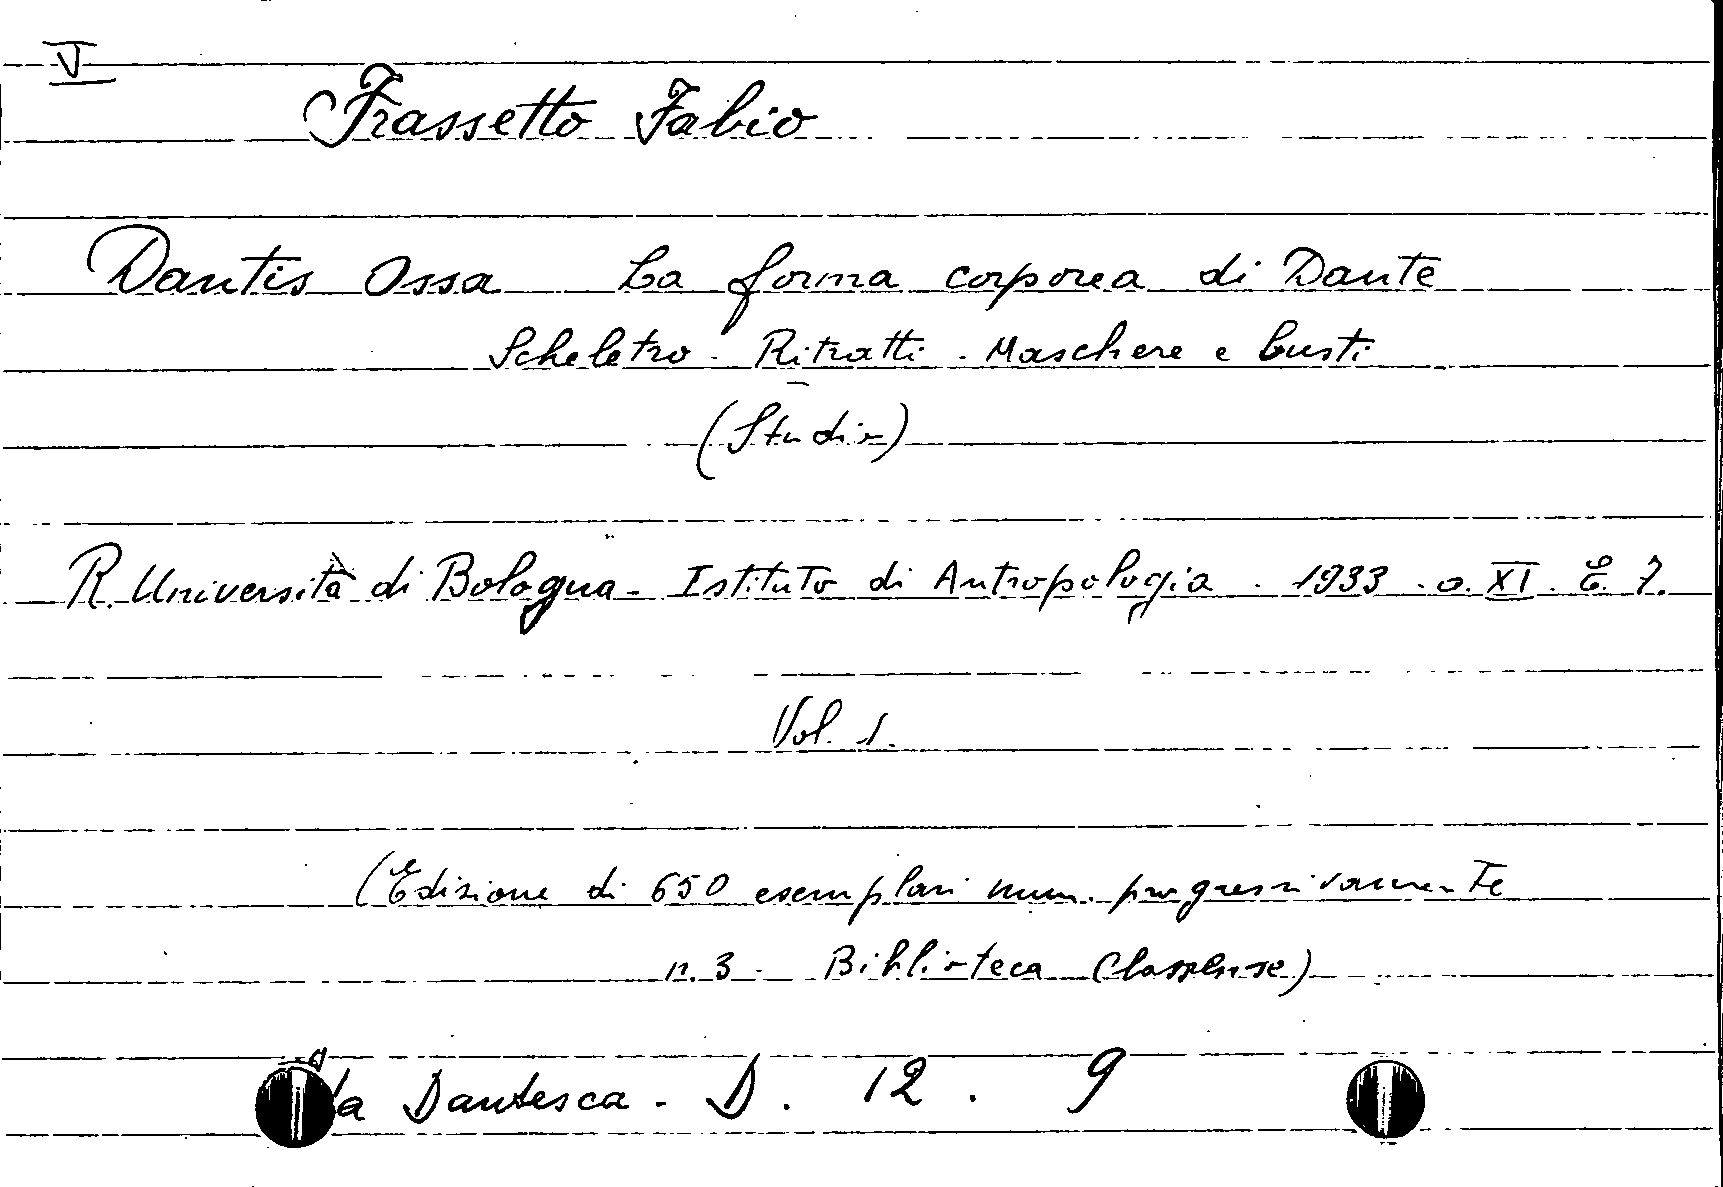 V
Frassetto Fabio
Dantis Ossa La forma corporea di Dante
Scheletro - Ritratti - Maschere e busti
(Studio)
R. Università di Bologna - Istituto di Antropologia - 1933 - a. XI. E. F.
Vol. 1.
(Edizione di 650 esemplari num. progressivamente
n. 3 - Biblioteca Classense)
Dantesca - D. 12. 9